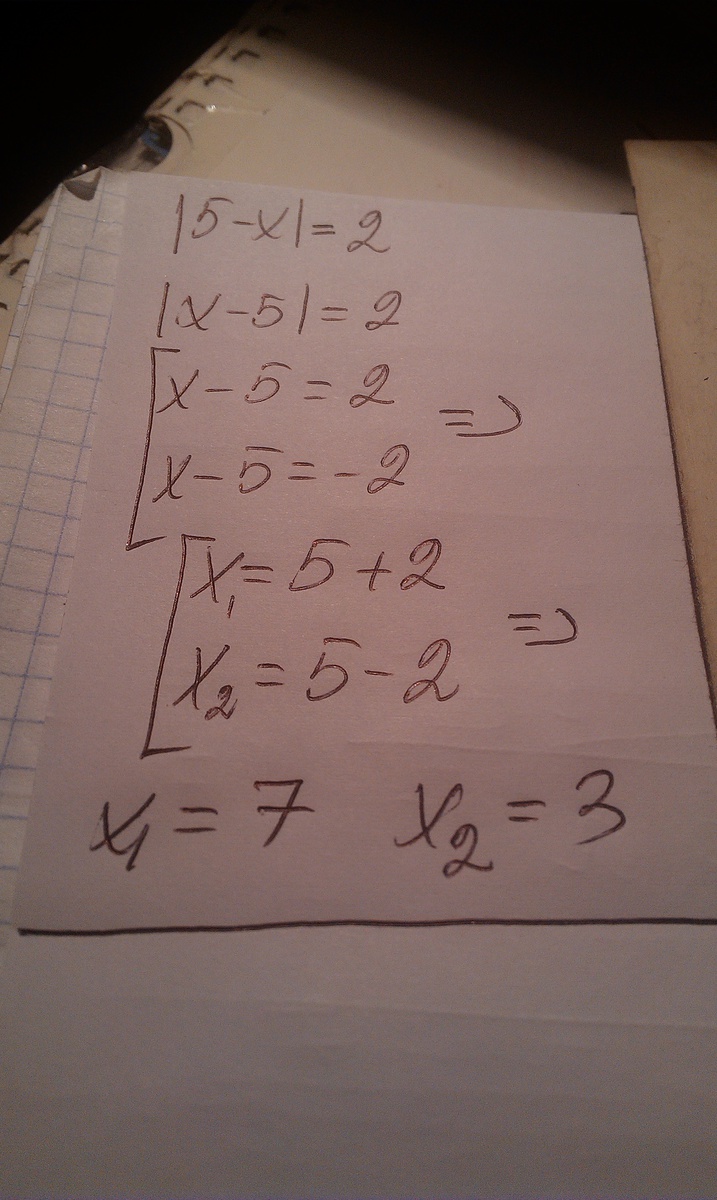 |5-x|=2
|x-5|=2
[x-5=2
x-5=-2 =>
[x₁=5+2
x₂=5-2 =>
x₁=7 x₂=3